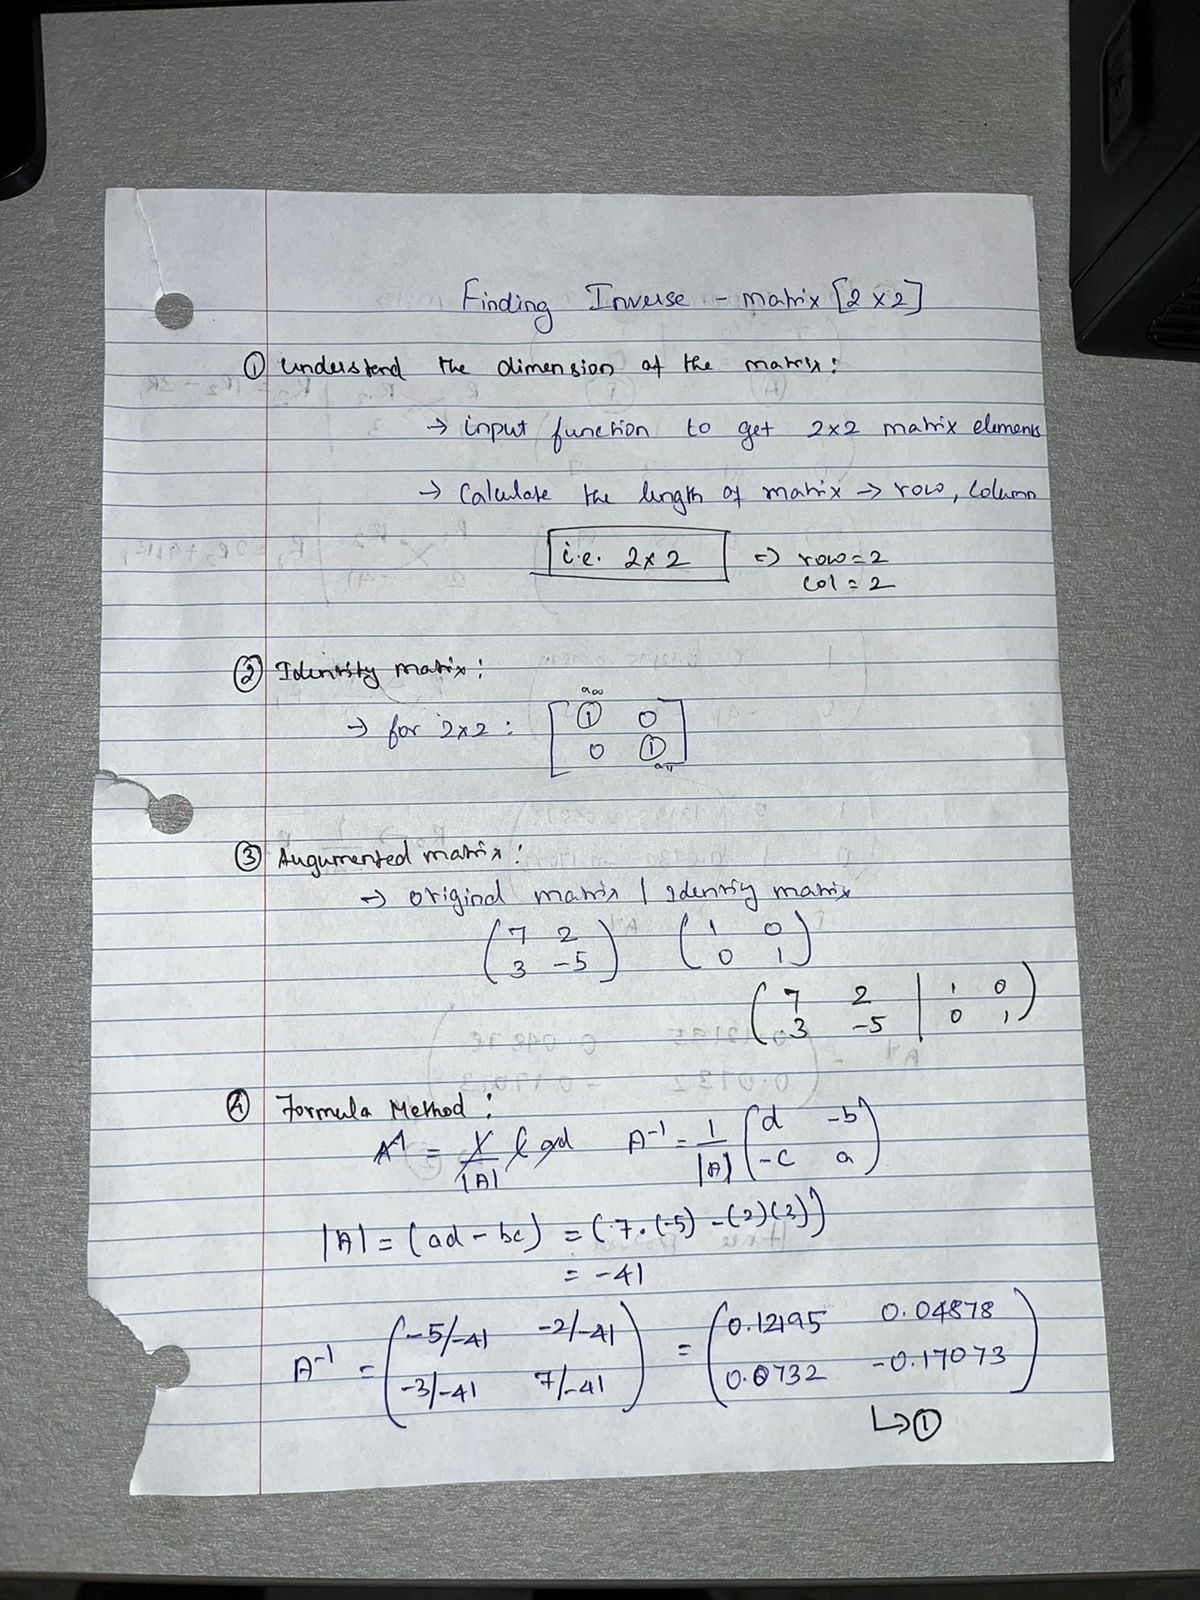 Finding Inverse - matrix [2 x 2]
① understand the dimension of the matrix:
→ input function to get 2x2 matrix elements
→ Calculate the length of matrix → row, Column
i.e. 2x2 => row = 2
col = 2
② Identity matrix:
a00
→ for 2x2 : [ ① 0
0 ① ]
a11
③ Augumented matrix:
→ original matrix | Identity matrix
( 7 2 ) ( 1 0 )
( 3 -5 ) ( 0 1 )
( 7 2 | 1 0 )
( 3 -5 | 0 1 )
④ Formula Method:
A^-1 = 1/|A| A^-1 = 1/|A| ( d -b
-c a )
|A| = (ad - bc) = (7.(-5) - (2)(3))
= -41
A^-1 = ( -5/-41 -2/-41 ) = ( 0.12195 0.04878 )
( -3/-41 7/-41 ) ( 0.0732 -0.17073 )
↳ ①